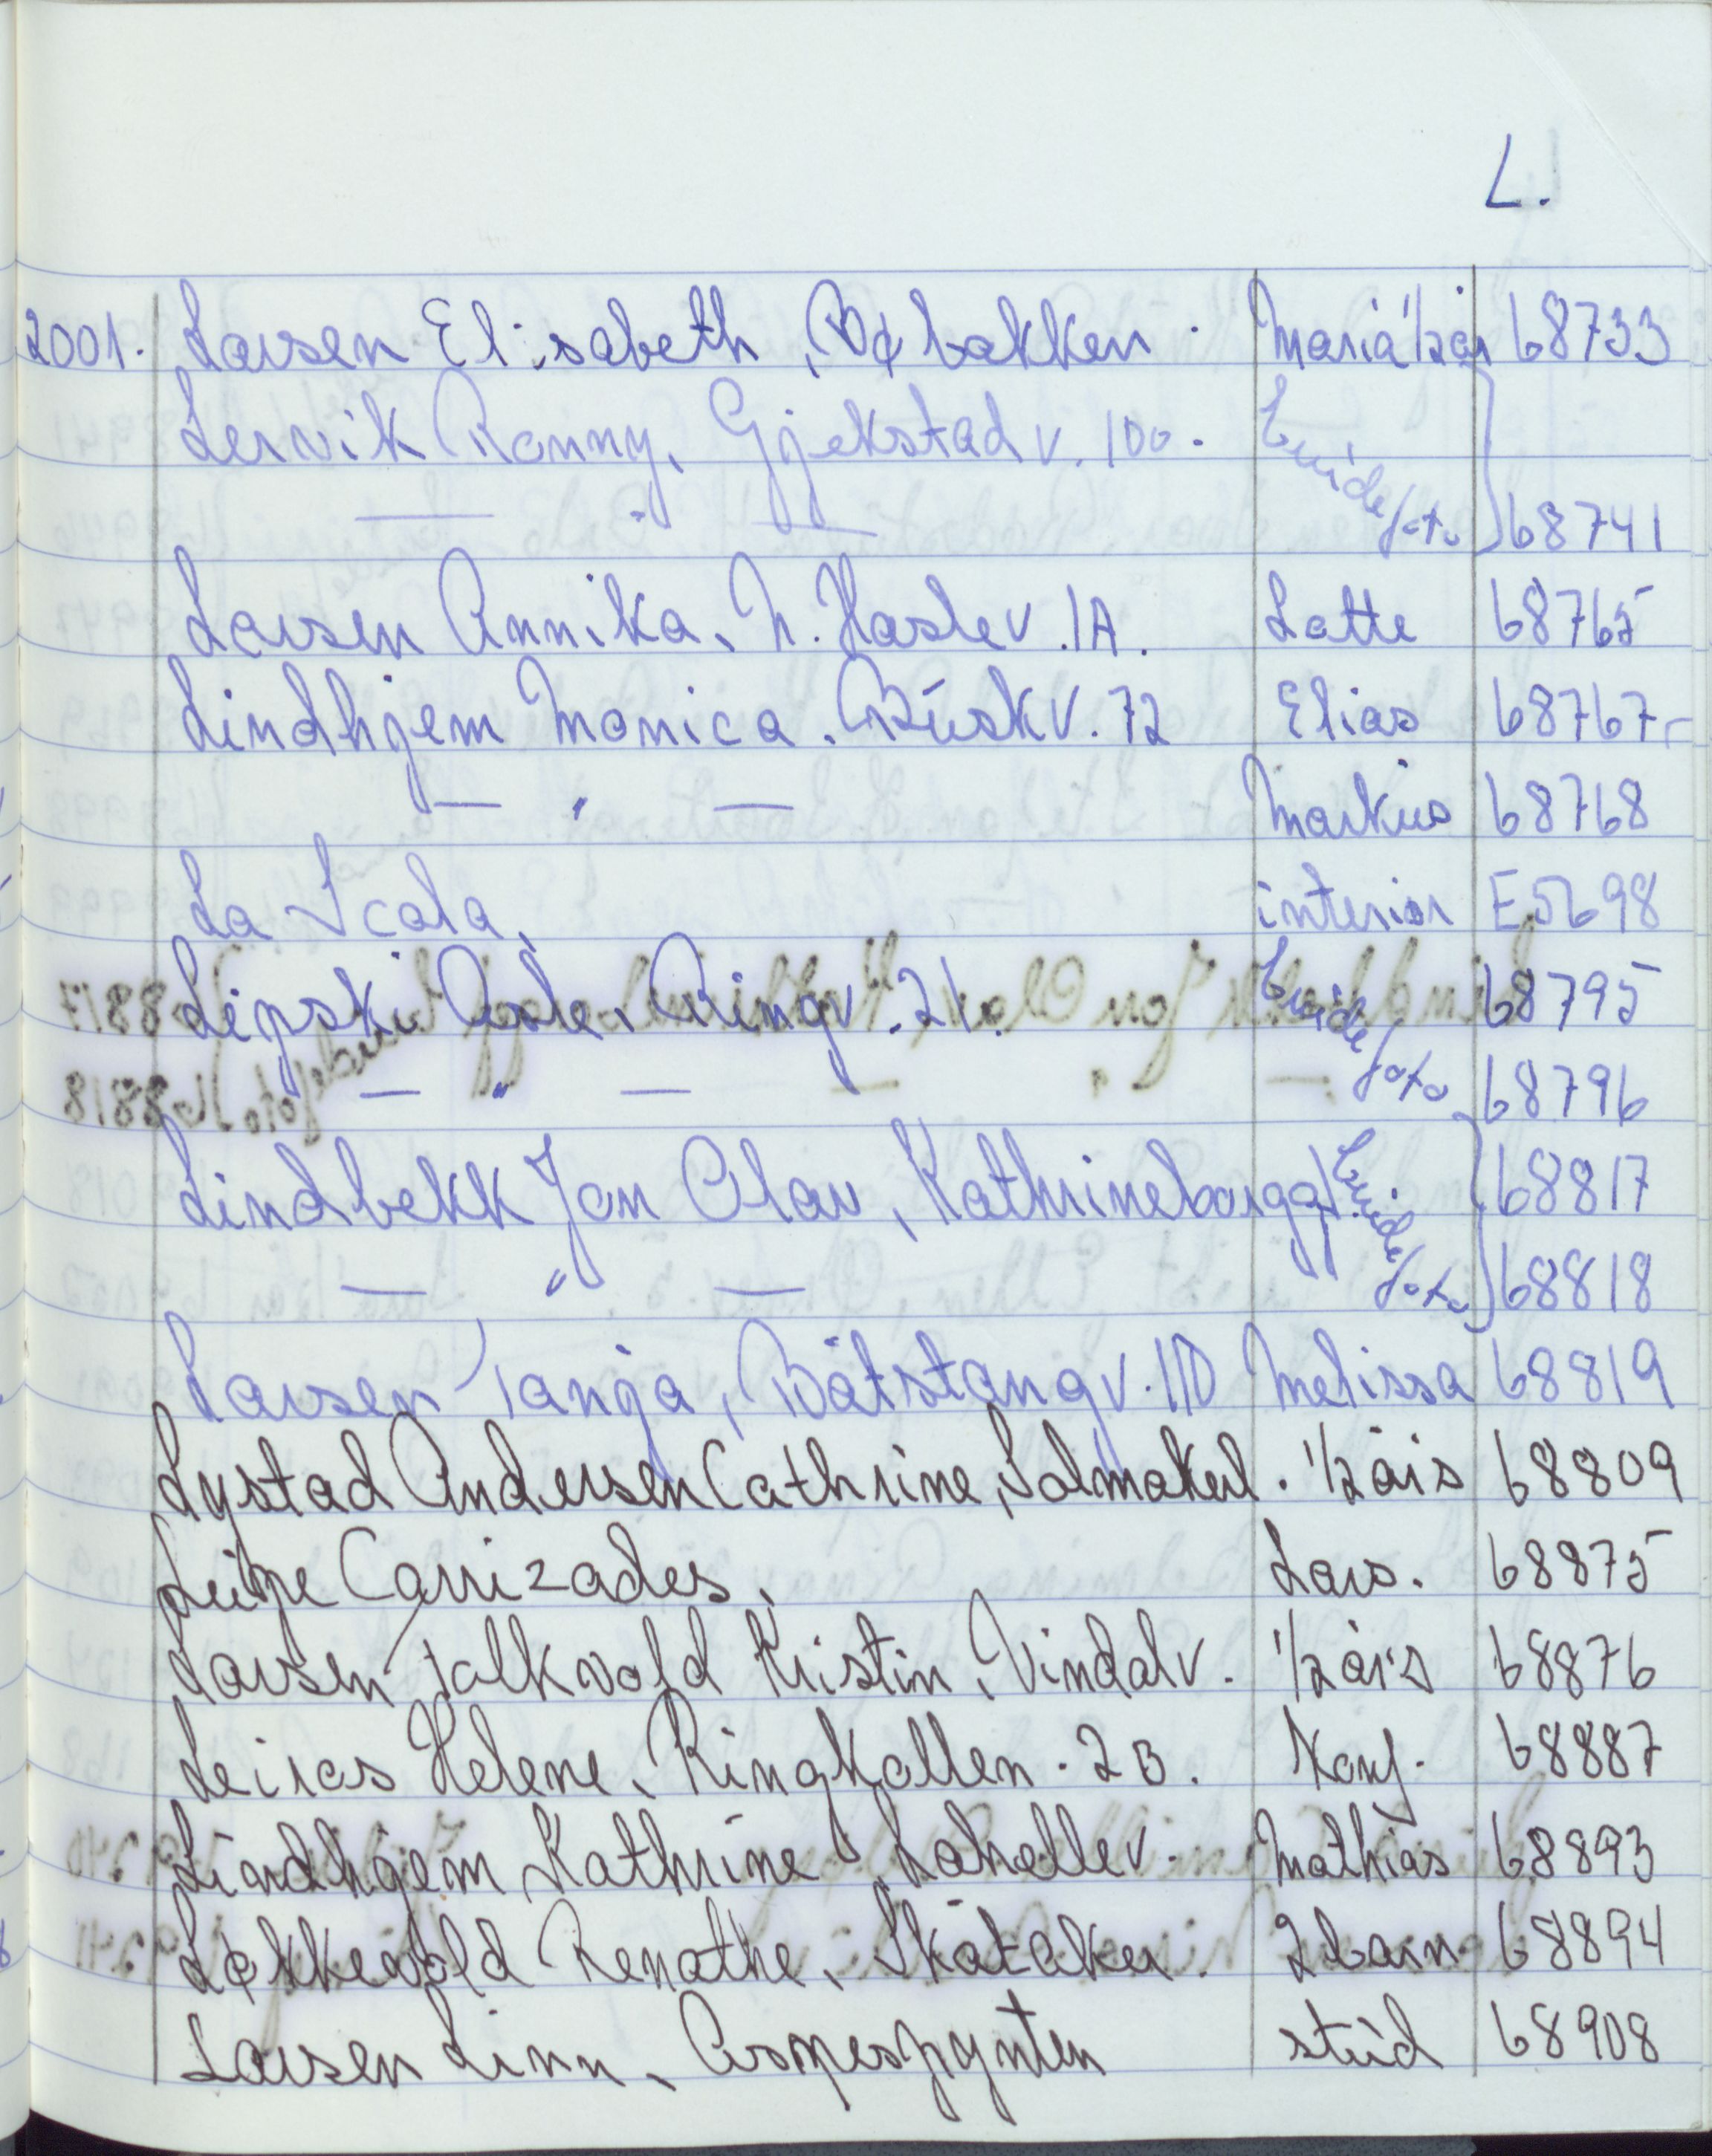 L.
2001. Larsen Elisabeth, Bøbakken. Maria 1/2 år 68733
Lervik Ronny, Gjekstadv. 100. Brudefoto
— " — 68741
Larsen Annika, N. Haslev. 1A. Lotte 68765
Lindhjem Monica. Buskv. 72 Elias 68767-
— " — Markus 68768
La Scala, interiør E5698
Lipski Asle, Ringv. 21. Brudefoto 68795
— " — 68796
Lindbekk Jon Olav, Kathrineborgg. Brudefoto 68817
— " — 68818
Larsen Tanja, Båtstangv. 11D Melissa 68819
Lystad Andersen Cathrine, Solmakel. 1/2 års 68809
Carrizades, Lars. 68875
Larsen Falkvold Kristin, Vindalv. 1/2 års 68876
Leiros Helene, Ringkollen. 2B. Konf. 68887
Lindhjem Kathrine, Mathias 68893
Løkkevold Renathe, Skåtaker. 2 barn 68894
Larsen Linn, Aspespynten stud 68908